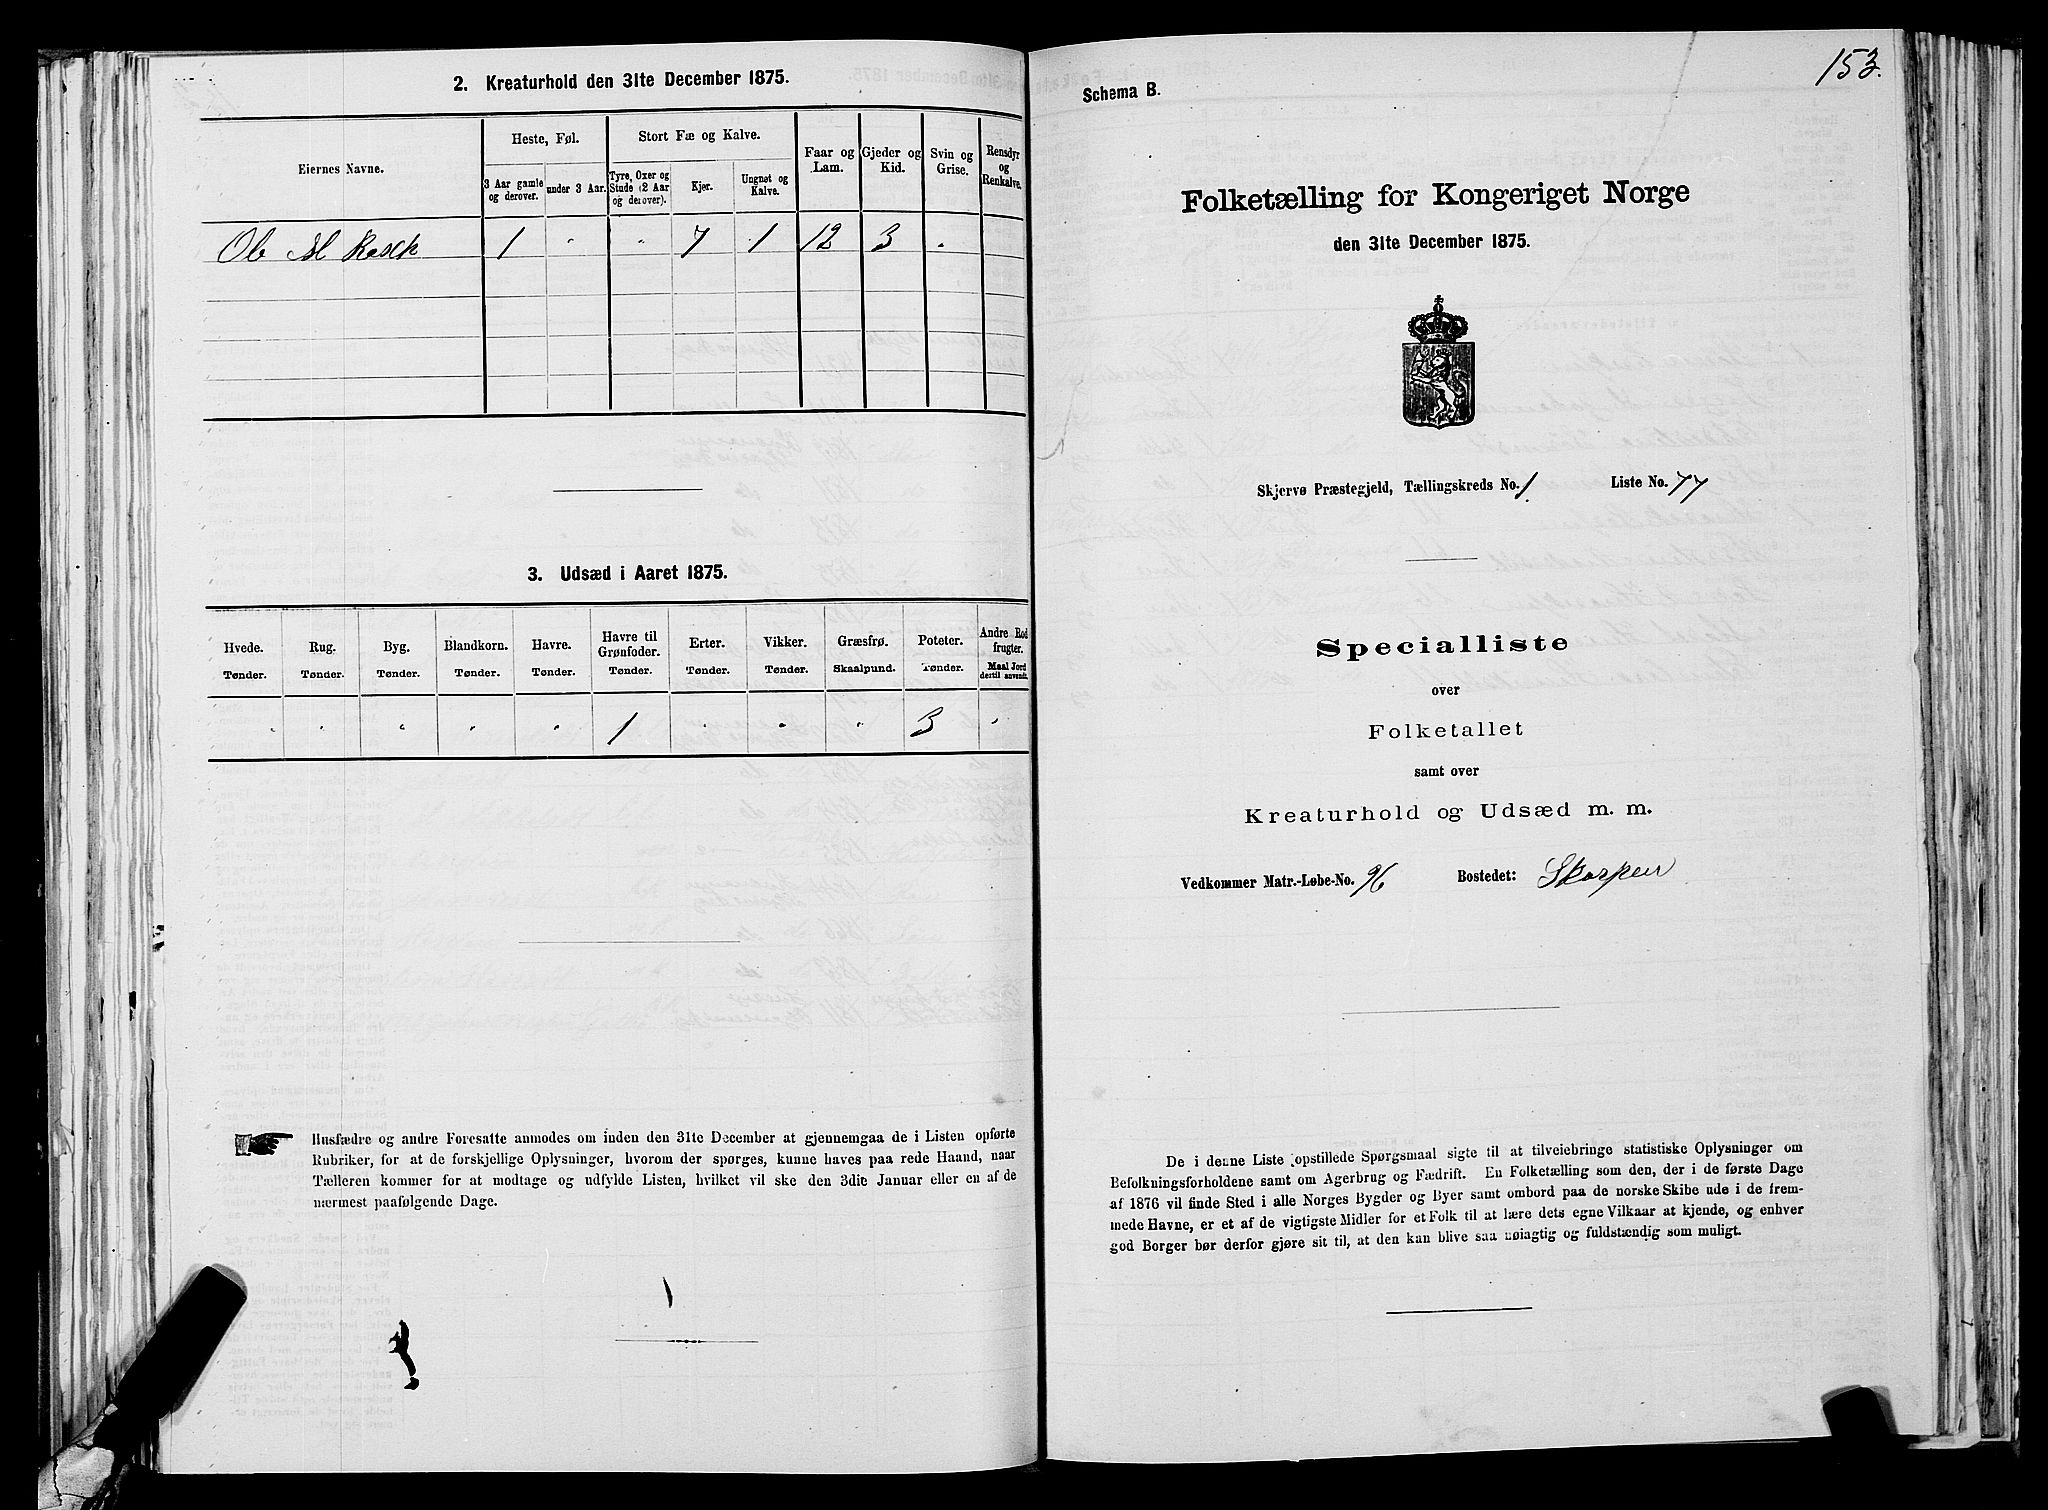 2. Kreaturhold den 31te December 1875.
Eiernes Navne.
Heste, Føl.
Stort Fæ og Kalve.
Faar og Lam.
Gjeder og Kid.
Svin og Grise.
Rensdyr og Renkalve.
3 Aar gamle og derover.
under 3 Aar.
Tyre, Oxer og Stude (2 Aar og derover).
Kjør.
Ungnøt og Kalve.
Ob M Rasch 1 " " 7 1 12 3 "
3. Udsæd i Aaret 1875.
Hvede. Rug. Byg. Blandkorn. Havre. Havre til Grønfoder. Erter. Vikker. Græsfrø. Poteter. Andre Rodfrugter.
Tønder. Tønder. Tønder. Tønder. Tønder. Tønder. Tønder. Tønder. Skaalpund. Tønder. Maal Jord dertil anvendt.
" " " " " 1 " " " 3 "
Husfædre og andre Foresatte anmodes om inden den 31te December at gjennemgaa de i Listen opførte
Rubriker, for at de forskjellige Oplysninger, hvorom der spørges, kunne haves paa rede Haand, naar
Tælleren kommer for at modtage og udfylde Listen, hvilket vil ske den 3die Januar eller en af de
nærmest paafølgende Dage.
153.
Schema B.
Folketælling for Kongeriget Norge
den 31te December 1875.
Skjervø Præstegjeld, Tællingskreds No. 1 Liste No. 77
Specialliste
over
Folketallet
samt over
Kreaturhold og Udsæd m. m.
Vedkommer Matr.-Løbe-No. 96 Bostedet: Skorpen
De i denne Liste opstillede Spørgsmaal sigte til at tilveiebringe statistiske Oplysninger om
Befolkningsforholdene samt om Agerbrug og Fædrift. En Folketælling som den, der i de første Dage
af 1876 vil finde Sted i alle Norges Bygder og Byer samt ombord paa de norske Skibe ude i de frem-
mede Havne, er et af de vigtigste Midler for et Folk til at lære dets egne Vilkaar at kjende, og enhver
god Borger bør derfor gjøre sit til, at den kan blive saa nøiagtig og fuldstændig som muligt.